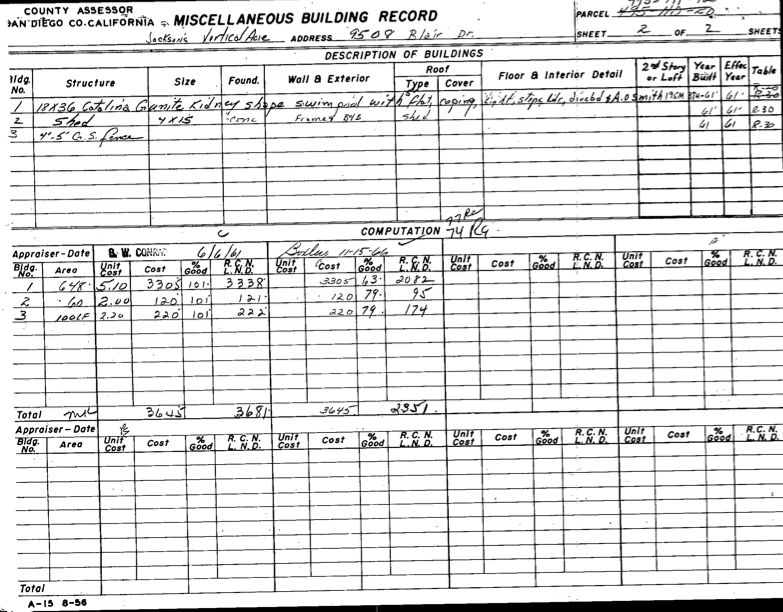 COUNTY ASSESSOR
SAN DIEGO CO. CALIFORNIA MISCELLANEOUS BUILDING RECORD PARCEL
Jacksons Vertical Acre ADDRESS 9508 Blair Dr. SHEET 2 OF 2 SHEETS
DESCRIPTION OF BUILDINGS
Bldg. No. Structure Size Found. Wall & Exterior Roof Type Cover Floor & Interior Detail 2nd Story or Loft Year Built Effec Year Table
1 18X36 Catalina Gunite Kidney shape swim pool with flat, coping, light, steps, ldr, A.O Smith 61 61
2 Shed 4X15 conc Framed Shed 61 61 8.30
3 4'-5' C.S. Fence 61 61 8.30
COMPUTATION
74
Appraiser-Date B. W. 6/6/61 11-15-66
Bldg. No. Area Unit Cost Cost % Good R.C.N. L.N.D. Unit Cost Cost % Good R.C.N. L.N.D. Unit Cost Cost % Good R.C.N. L.N.D. Unit Cost Cost % Good R.C.N. L.N.D.
1 648 5.10 3305 101 3338 3305 63 2082
2 60 2.00 120 101 121 120 79 95
3 100LF 2.20 220 101 222 220 79 174
Total 3645 3681 3645 2351
Appraiser-Date
Bldg. No. Area Unit Cost Cost % Good R.C.N. L.N.D. Unit Cost Cost % Good R.C.N. L.N.D. Unit Cost Cost % Good R.C.N. L.N.D. Unit Cost Cost % Good R.C.N. L.N.D.
Total
A-15 8-56